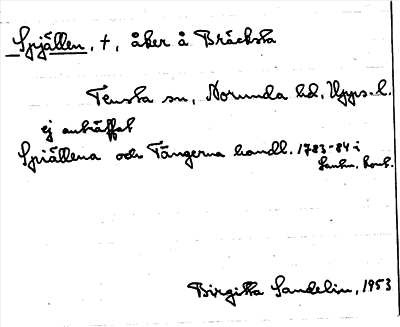 Spjällen, †, åker å Bräcksta
Tensta sn, Norunda hd, Upps. l.
ej anträffat
Spiällena och Tångerna handl. 1783-84 i
Lantm. kont.
Birgitta Sandelin, 1953